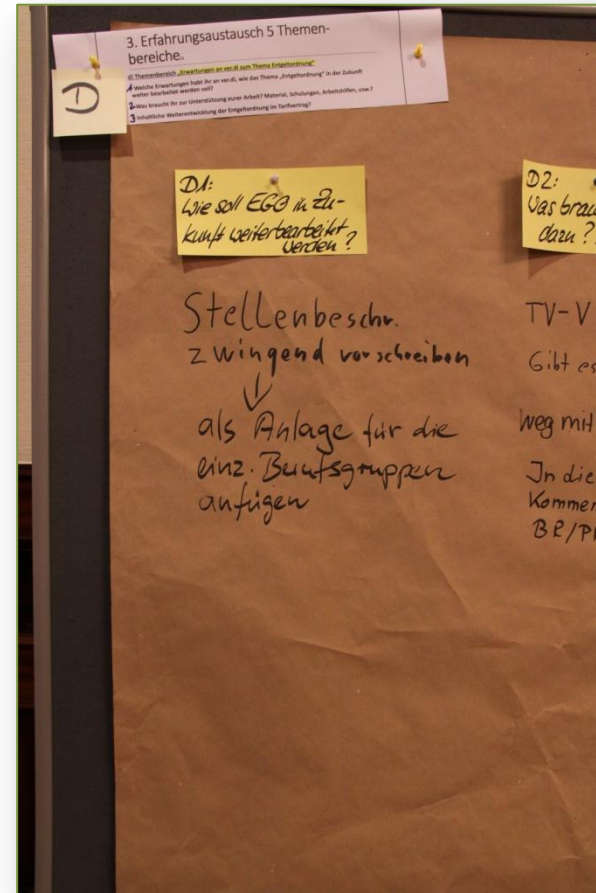 3. Erfahrungsaustausch 5 Themen-
bereiche
d) Themenbereich „Erwartungen an ver.di zum Thema Entgeltordnung"
1 Welche Erwartungen habt Ihr an ver.di, wie das Thema „Entgeltordnung" in der Zukunft
weiter bearbeitet werden soll?
2 Was braucht Ihr zur Unterstützung eurer Arbeit? Material, Schulungen, Arbeitshilfen, usw.?
3 Inhaltliche Weiterentwicklung der Entgeltordnung im Tarifvertrag?
D
D1:
Wie soll EGO in Zu-
kunft weiterbearbeitet
werden?
Stellenbeschr.
zwingend vorschreiben
als Anlage für die
einz. Berufsgruppen
anfügen
D2:
Was
dazu?
TV-V
Gibt es
weg mit
In die
BR/